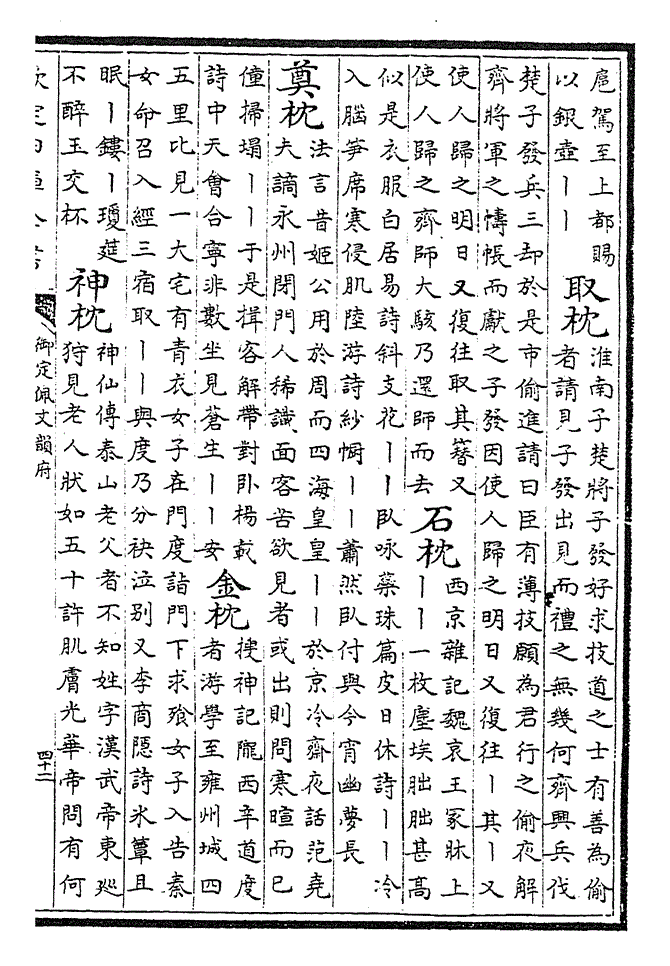 扈駕至上都賜
以銀壺丨丨
取枕
淮南子楚將子發好求技道之士有善為偷
者請見子發出見而禮之無幾何齊興兵伐
楚子發兵三却於是市偷進請曰臣有薄技願為君行之偷夜解
齊將軍之幬帳而獻之子發因使人歸之明日又復往丨其丨又
使人歸之明日又復往取其簪又
使人歸之齊師大駭乃還師而去
石枕
西京雜記魏哀王冢牀上
丨丨一枚塵埃朏朏甚高
似是衣服白居易詩斜支花丨丨臥咏蘂珠篇皮日休詩丨丨冷
入腦笋席寒侵肌陸游詩紗㡡丨丨蕭然臥付與今宵幽夢長
奠枕
法言昔姬公用於周而四海皇皇丨丨於京冷齋夜話范堯
夫謫永州閉門人稀識面客苦欲見者或出則問寒暄而已
僮掃榻丨丨于是揖客解帶對卧楊載
詩中天會合寧非數坐見蒼生丨丨安
金枕
搜神記隴西辛道度
者游學至雍州城四
五里比見一大宅有青衣女子在門度詣門下求飱女子入告秦
女命召入經三宿取丨丨與度乃分袂泣别又李商隱詩氷簟且
眠丨鏤丨瓊筵
不醉玉交杯
神枕
神仙傳泰山老父者不知姓字漢武帝東廵
狩見老人狀如五十許肌膚光華帝問有何
欽定四庫全書
御定佩文韻府
四十二